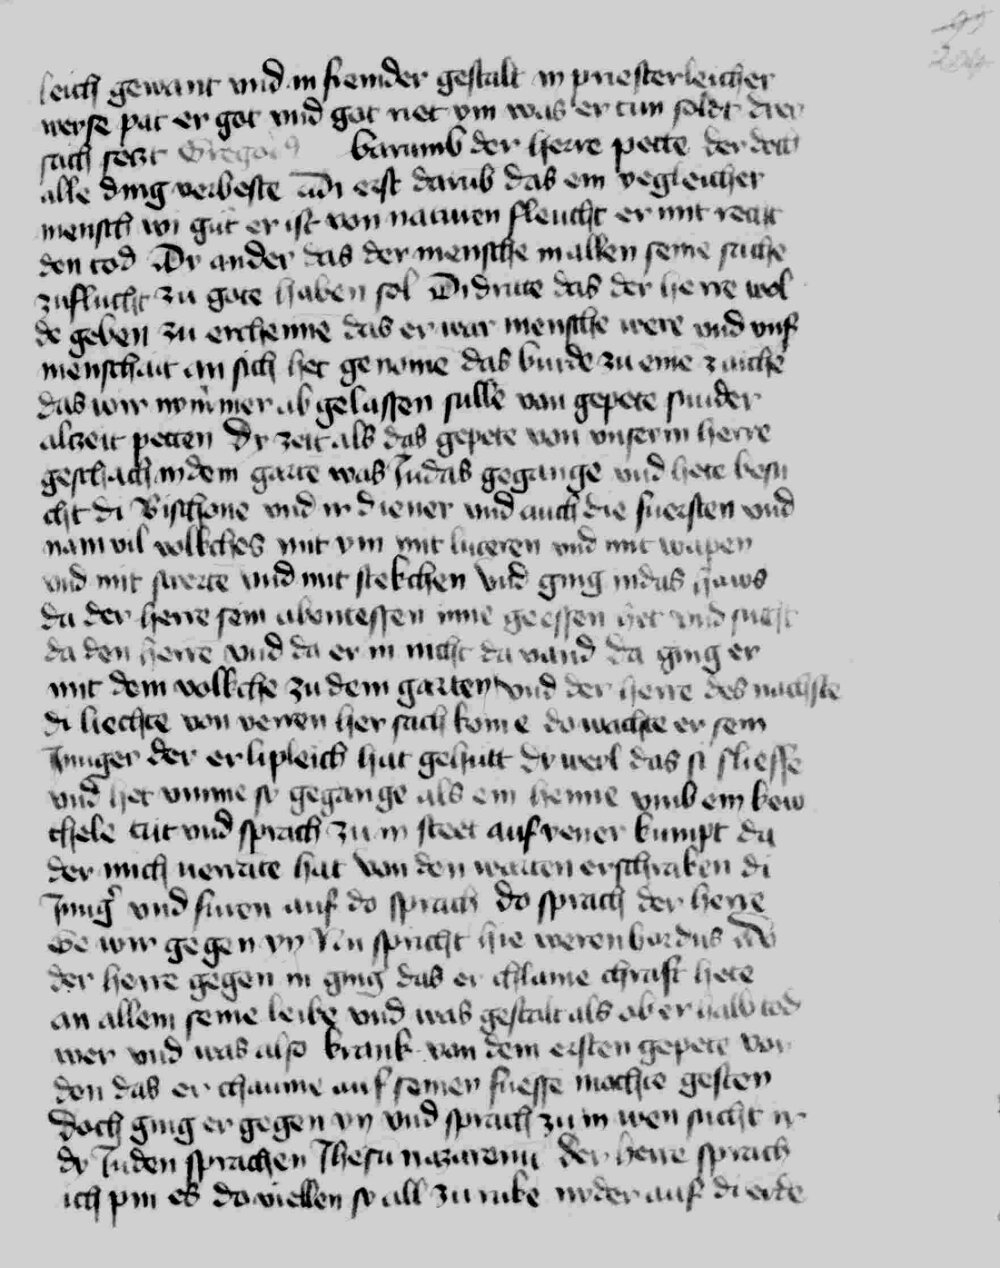 leich gewant vnd in fremder gestalt in priesterleicher
weyse pat er got vnd got riet ym was er tun soldt diec
sach seczt Gregoriꝰ barumb der herre pette der doch
alle ding verbeste Am erst darūb das ein yegleicher
mensch wi gut er ist von naturen fleucht er mit recht
den tod Dy ander das der mensche in allen seine sache
zuflucht zu gote haben sol Di dritte das der herre wol
de geben zu erchenne das er war mensche were vnd vnß
menschait an sich het genome das burde zu eine zaiche
das wir nymmer ab gelassen sulle von gepete sunder
alczeit petten Dy zeit als das gepete von vnserm herre
geschach in dem garte was Judas gegange vnd hete besu
cht di Bischone vnd ir diener vnd auch die fuersten vnd
nam vil volkches mit ym mit luceren vnd mit wapen
vnd mit swerte vnd mit stekchen vnd ging in das haws
da der herre sein abentessen inne geessen het vnd sucht
da den herre vnd da er in nicht da vand da ging er
mit dem vollkche zu dem garten vnd der herre des nachste
di liechte von verren her sach kome do wachte er sein
Junger der er lipleich hat gehutt dy weil das si sliesse
vnd het vmme sy gegange als ein henne vmb ein kew
chele tut vnd sprach zu in steet auf yener kumpt da
der mich verrate hat Von den worten erschraken di
Jungʼ vnd furen auf do sprach do sprach der herre
Ge wir gegen yn Nu spricht hie weren bordus Do
der herre gegen in ging das er chlaine chraft hete
an allem seine leibe vnd was gestalt als ob er halb tod
wer vnd was also krank von dem ersten gepete vor
den das er chaume auf seinen fuesse mochte gesten
doch ging er gegen yn vnd sprach zu in wen sucht ir
dy Juden sprachen Jhesu nazarenu der herre sprach
ich pin es do viellen sy all zuruke nyder auf di erde